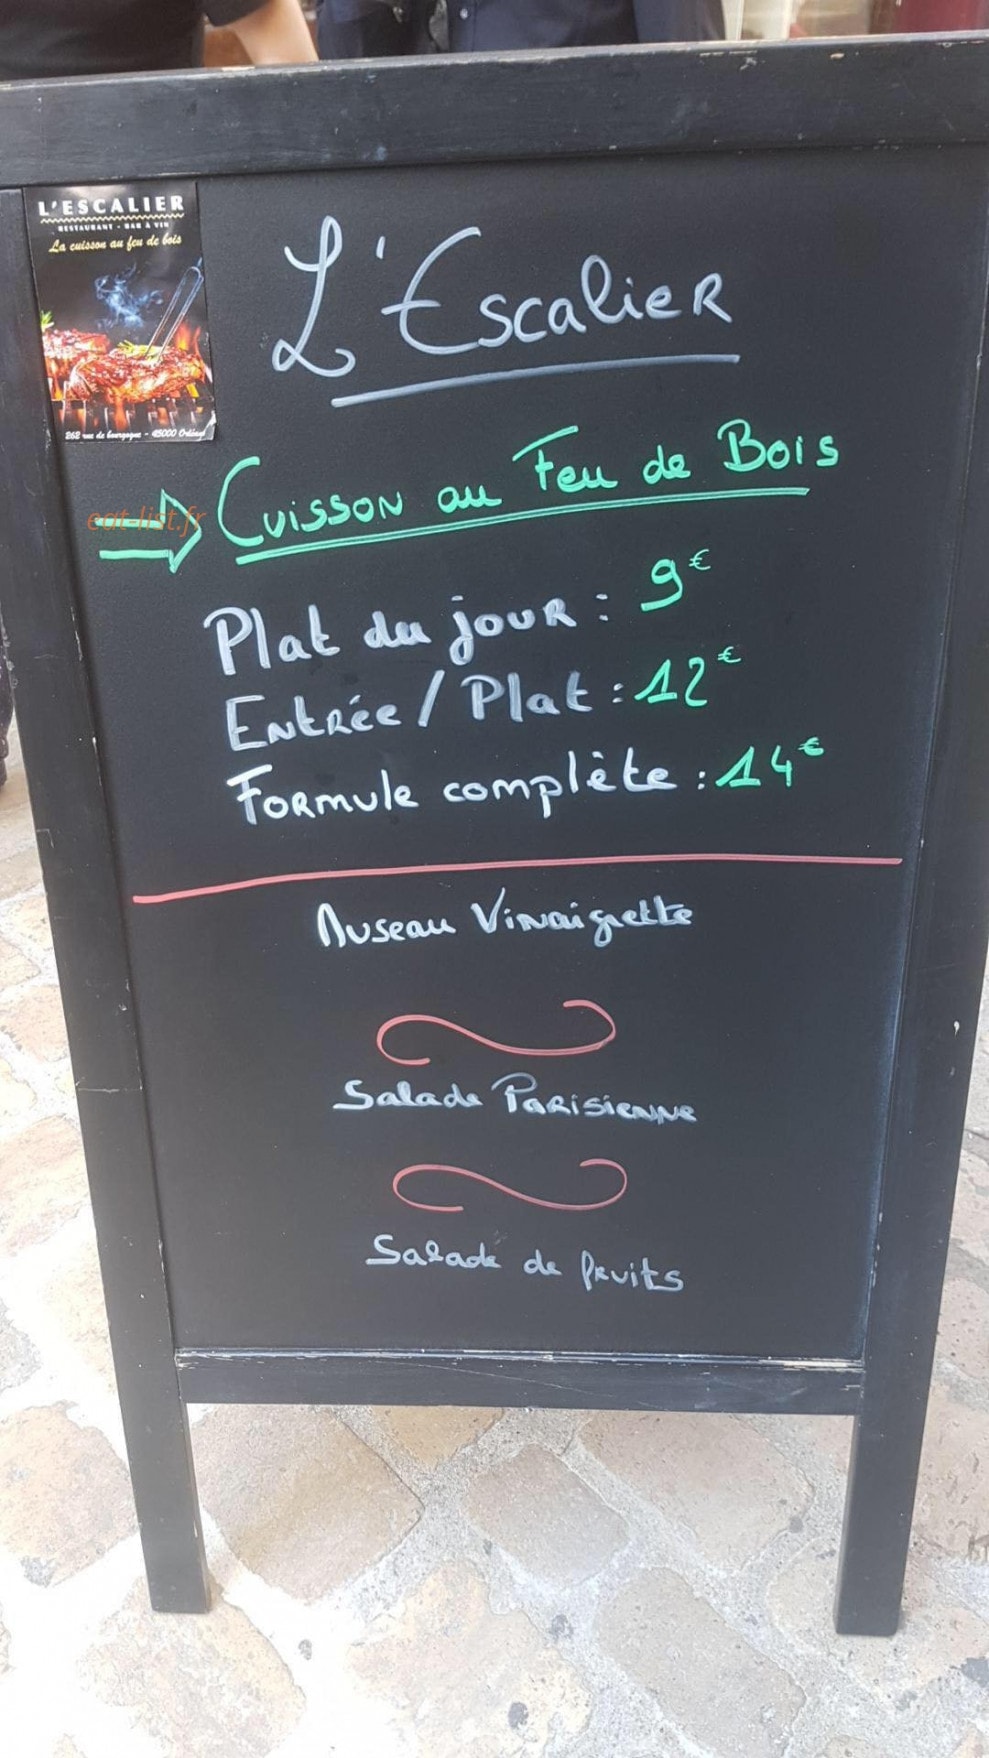 L'ESCALIER
RESTAURANT - BAR À VIN
La cuisson au feu de bois
262 rue de bourgogne - 45000 Orléans
L'Escalier
Cuisson au Feu de Bois
eat-list.fr
Plat du jour : 9€
Entrée / Plat : 12€
Formule complète : 14€
Museau Vinaigrette
Salade Parisienne
Salade de fruits